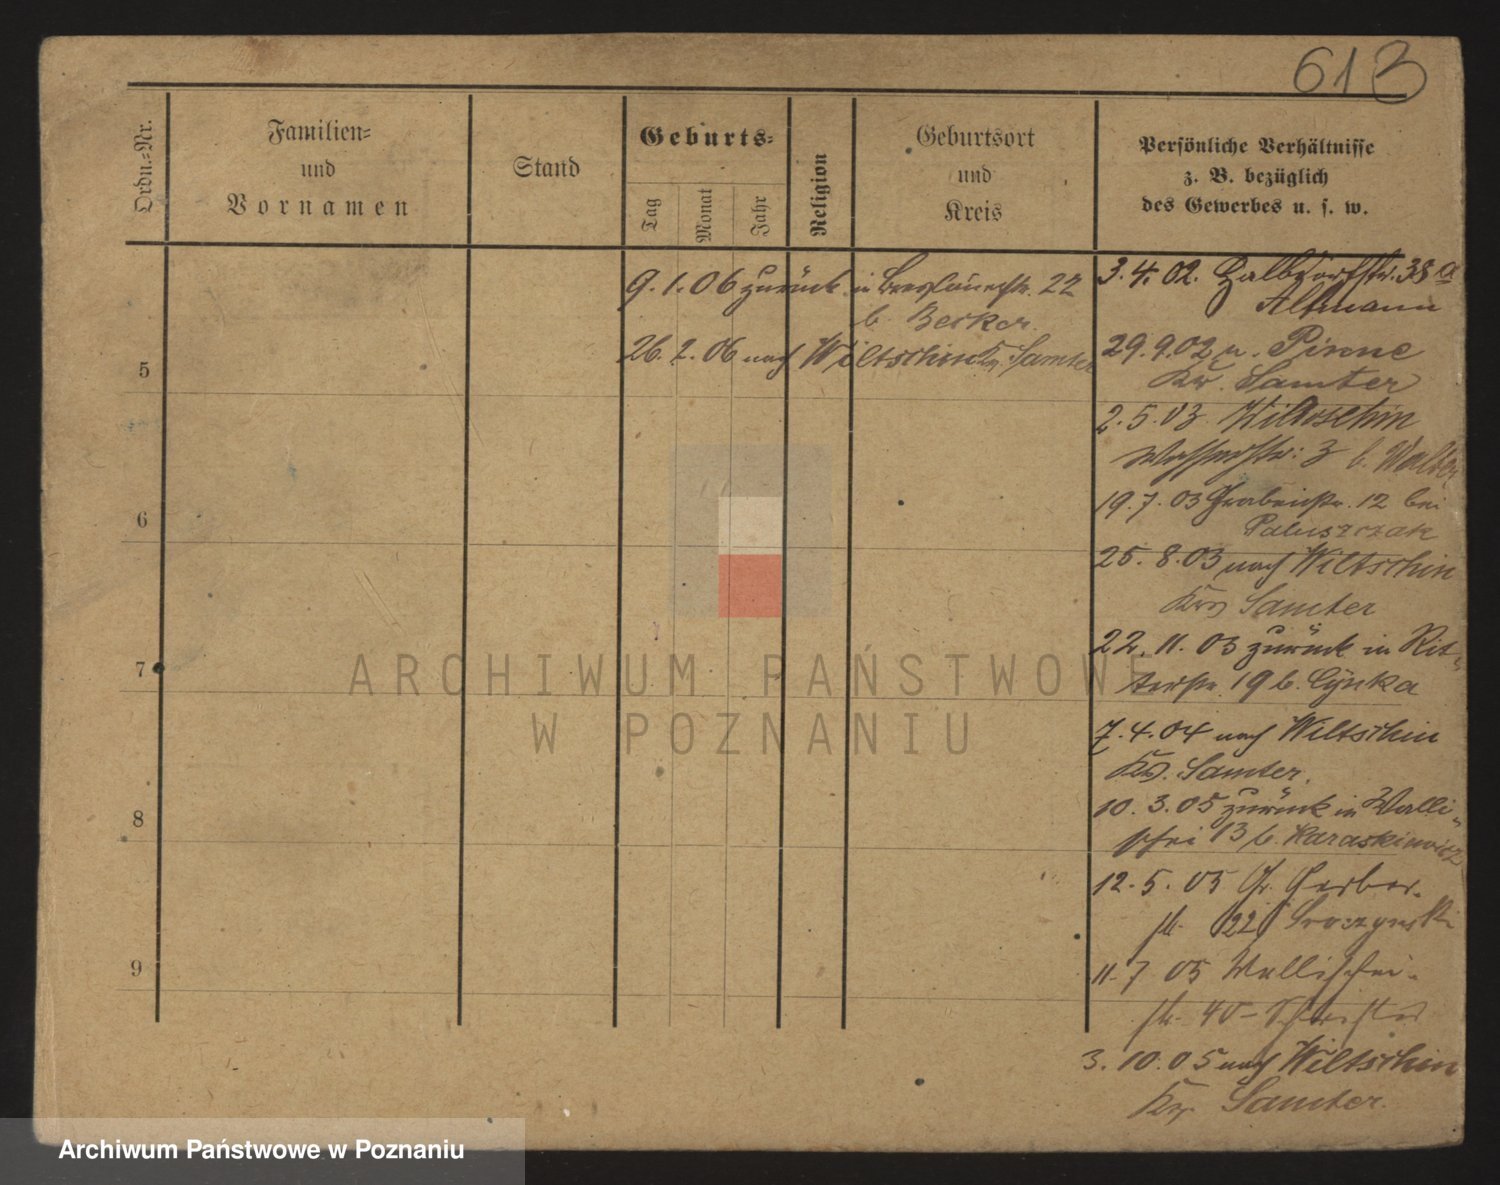 613
Ordn.=Nr.
Familien=
und
Vornamen
Stand
Geburts=
Tag
Monat
Jahr
Religion
Geburtsort
und
Kreis
Persönliche Verhältnisse
z. B. bezüglich
des Gewerbes u. s. w.
9.1.06 zurück in Breslauerstr. 22
b. Becker
26.2.06 nach Wiltschin Kr. Samter
3.4.02. Halbdorfstr. 38a
Altmann
29.9.02 n. Pirene
Kr. Samter
2.5.03 Wiltschin
Wasserstr: 3 b.
19.7.03 Grabenstr. 12 bei
Paluszczak
25.8.03 nach Wiltschin
Krs Samter
22.11.03 zurück in Rit-
terstr. 19 b. Cynka
7.4.04 nach Wiltschin
Kr. Samter.
10.3.05 zurück in Walli-
schei 13 b. Karaskiewicz
12.5.05 Gr. Gerber-
str. 22
11.7 05 Wallischei-
str. 40
3.10.05 nach Wiltschin
Kr. Samter.
5
6
7
8
9
ARCHIWUM PAŃSTWOWE
W POZNANIU
Archiwum Państwowe w Poznaniu